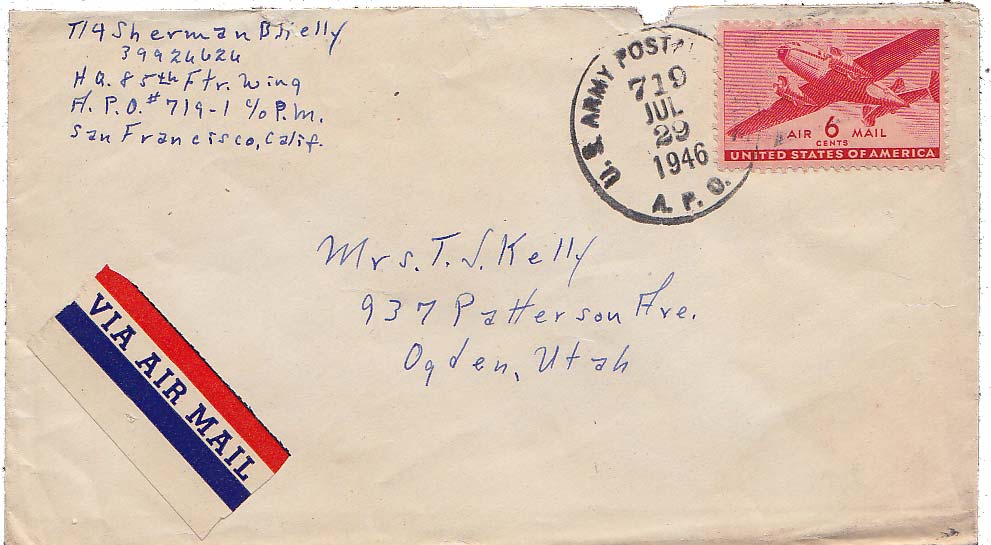 T/4 Sherman Brielly
39924624
HQ. 85th Ftr. Wing
A. P. O. # 719-1 c/o P.M.
San Francisco, Calif.
U. S. ARMY POSTAL
719
JUL
29
1946
A. P. O.
AIR 6 MAIL
CENTS
UNITED STATES OF AMERICA
Mrs. T. J. Kelly
937 Patterson Ave.
Ogden, Utah
VIA AIR MAIL